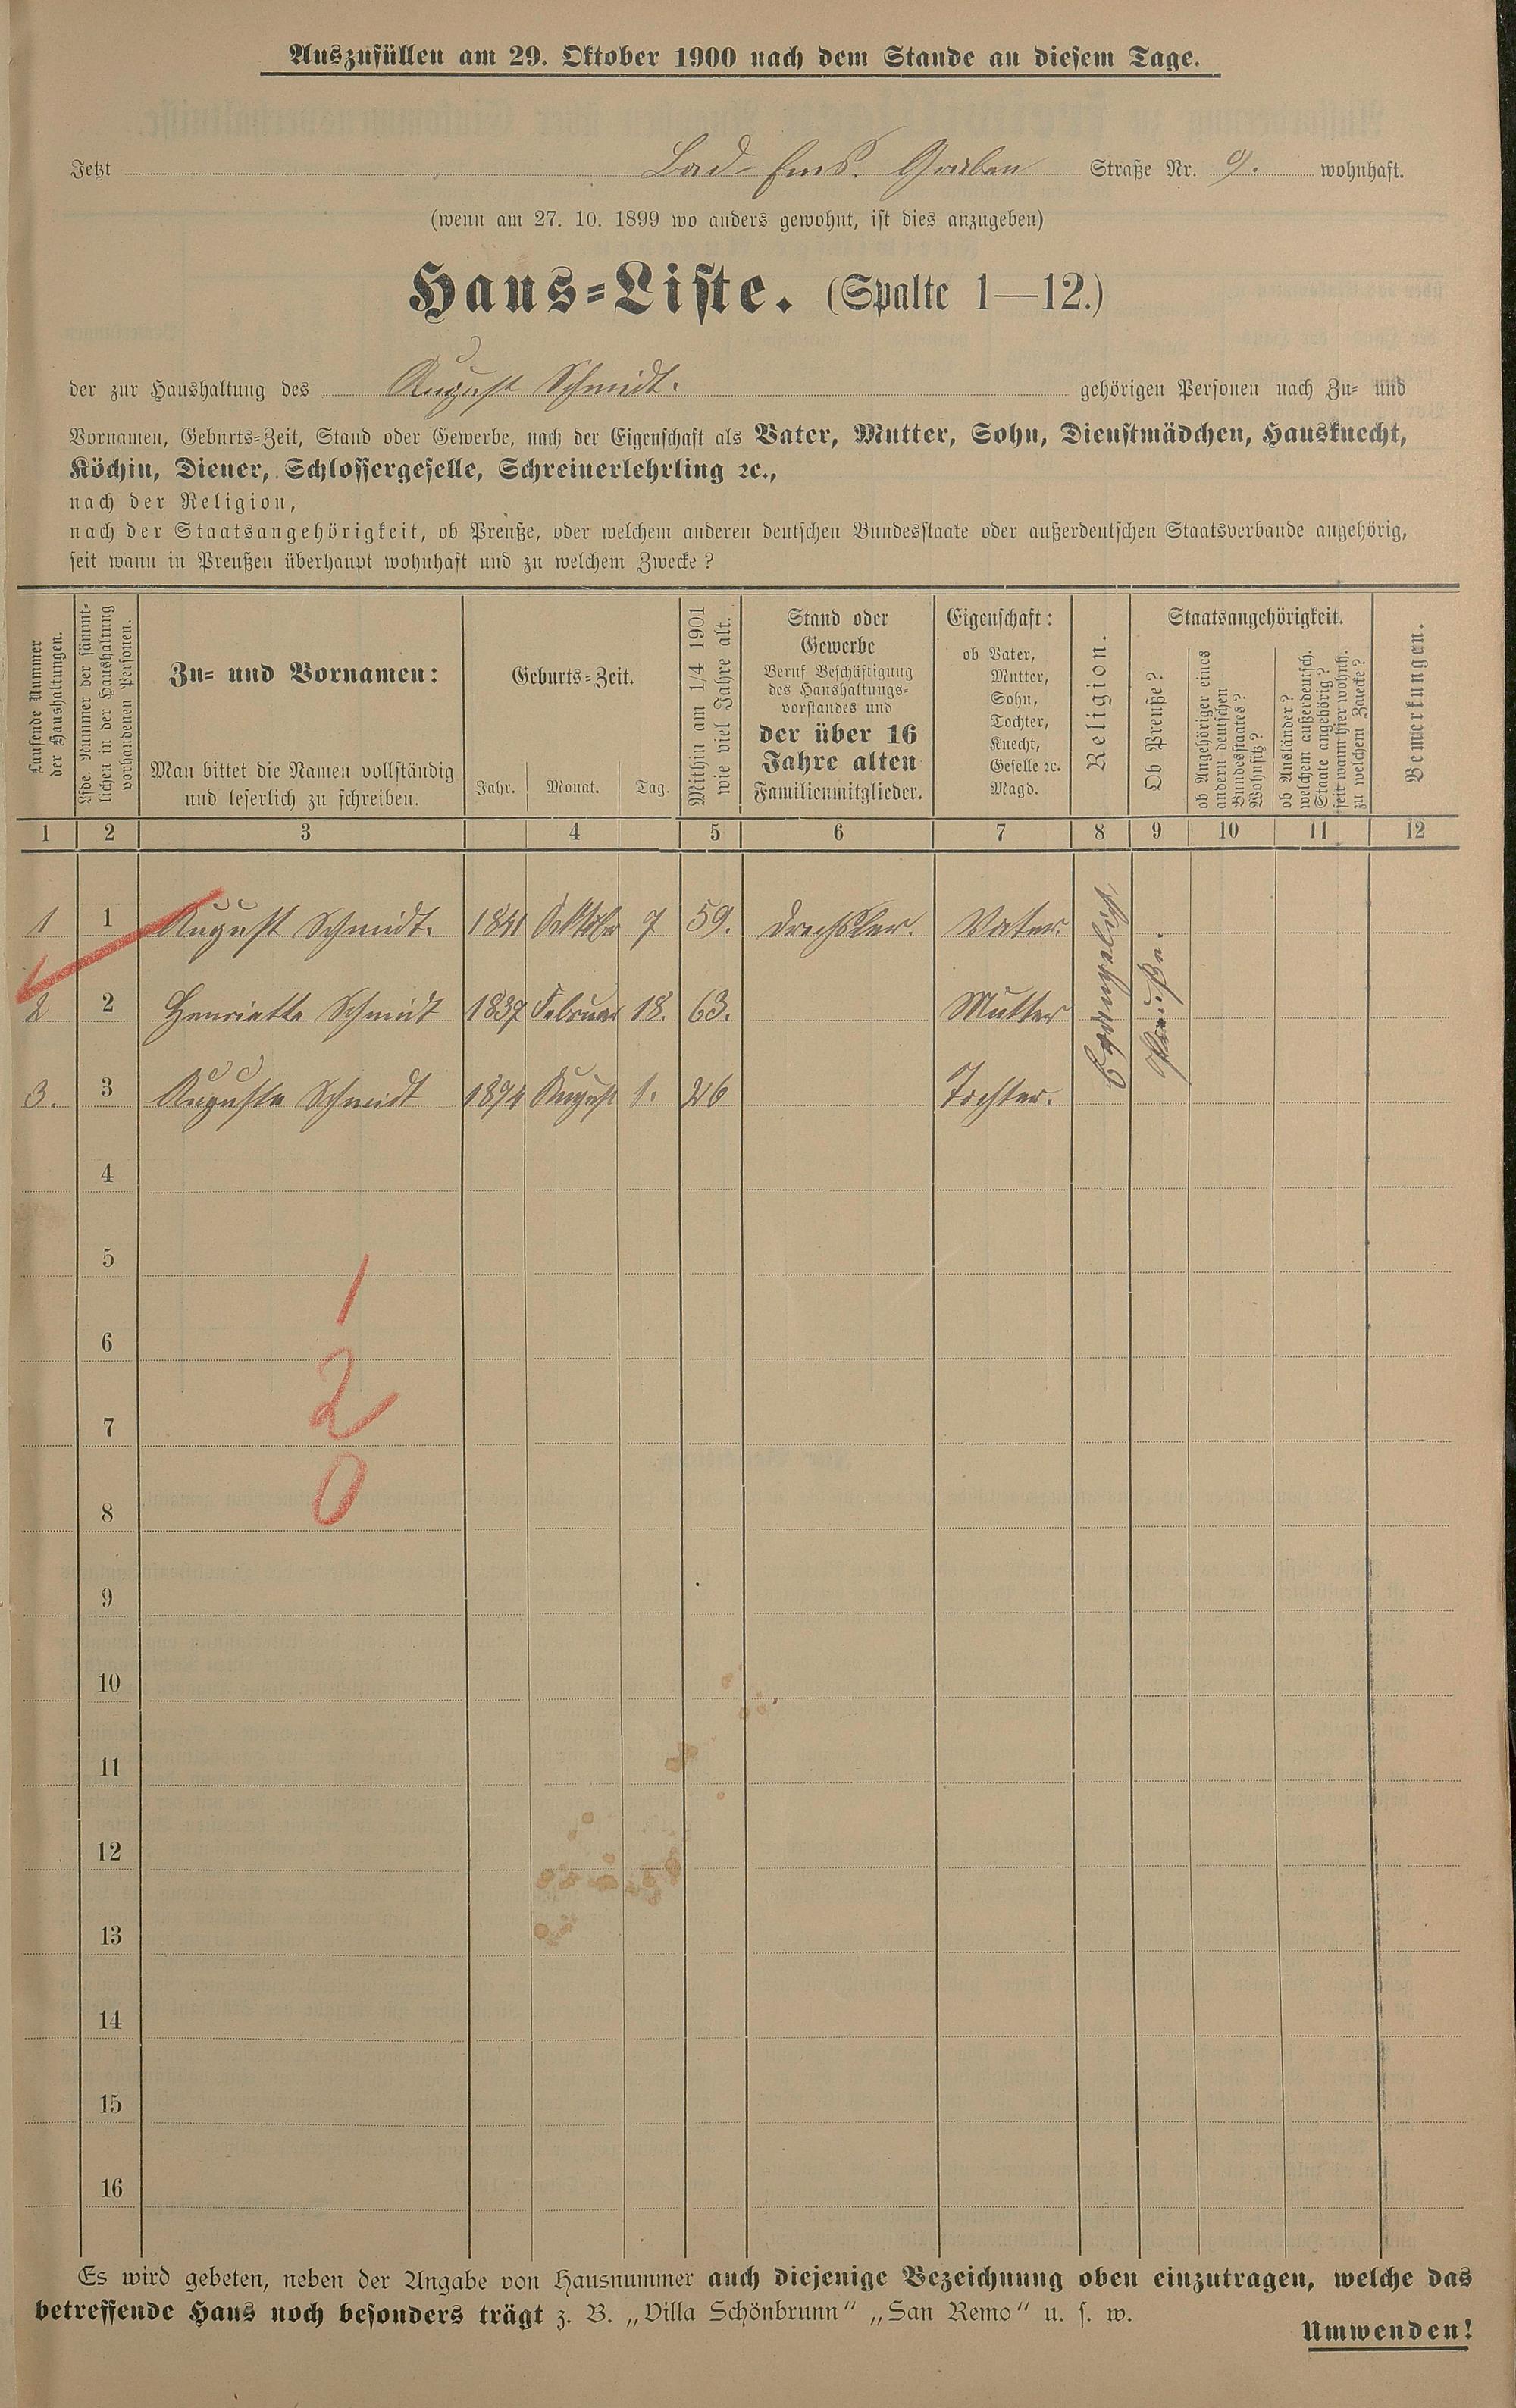 Auszufüllen am 29. Oktober 1900 nach dem Stande an diesem Tage.
Jetzt Bad-Ems. Graben Straße Nr. 9. wohnhaft.
(wenn am 27. 10. 1899 wo anders gewohnt, ist dies anzugeben)
Haus-Liste. (Spalte 1—12.)
der zur Haushaltung des August Schmidt. gehörigen Personen nach Zu- und
Vornamen, Geburts-Zeit, Stand oder Gewerbe, nach der Eigenschaft als Vater, Mutter, Sohn, Dienstmädchen, Hausknecht,
Köchin, Diener, Schlossergeselle, Schreinerlehrling ꝛc.,
nach der Religion,
nach der Staatsangehörigkeit, ob Preuße, oder welchem anderen deutschen Bundesstaate oder außerdeutschen Staatsverbande angehörig,
seit wann in Preußen überhaupt wohnhaft und zu welchem Zwecke?
Laufende Nummer
der Haushaltungen.
Lfde. Nummer der sämmt-
lichen in der Haushaltung
vorhandenen Personen.
Zu- und Vornamen:
Man bittet die Namen vollständig
und leserlich zu schreiben.
Geburts-Zeit.
Jahr. Monat. Tag.
Mithin am 1/4 1901
wie viel Jahre alt.
Stand oder
Gewerbe
Beruf Beschäftigung
des Haushaltungs-
vorstandes und
der über 16
Jahre alten
Familienmitglieder.
Eigenschaft:
ob Vater,
Mutter,
Sohn,
Tochter,
Knecht,
Geselle ꝛc.
Magd.
Religion.
Staatsangehörigkeit.
Ob Preuße?
ob Angehöriger eines
andern deutschen
Bundesstaates?
Wohnsitz?
ob Ausländer?
welchem außerdeutsch.
Staate angehörig?
seit wann hier wohnh.
zu welchem Zwecke?
Bemerkungen.
1 2 3 4 5 6 7 8 9 10 11 12
1 1 August Schmidt. 1841 Oktober 7 59. Drechsler. Vater.
2 2 Henriette Schmidt 1837 Februar 18. 63. Mutter
3. 3 Auguste Schmidt 1874 August 1. 26 Tochter.
Evangelisch
Preuße.
4
5
1
6
2
7
0
8
9
10
11
12
13
14
15
16
Es wird gebeten, neben der Angabe von Hausnummer auch diejenige Bezeichnung oben einzutragen, welche das
betreffende Haus noch besonders trägt z. B. „Villa Schönbrunn“ „San Remo“ u. s. w.
Umwenden!